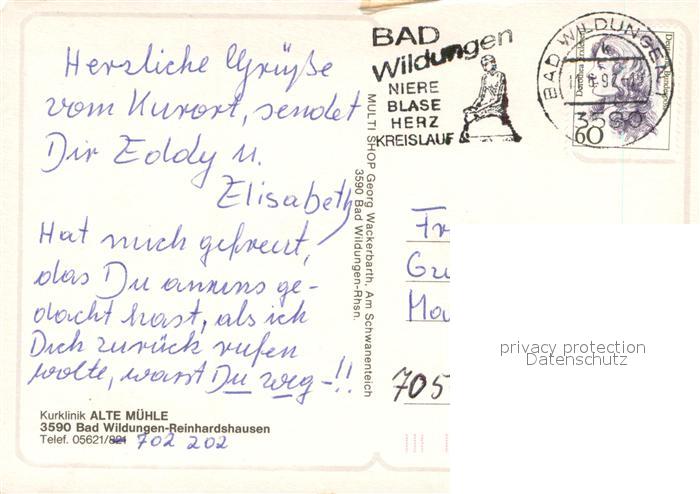 Herzliche Grüße
vom Kurort, sendet
Dir Eddy u.
Elisabeth
Hat mich gefreut,
das Du an uns ge-
dacht hast, als ich
Dich zurück rufen
wolte, warst Du weg -!!
Kurklinik ALTE MÜHLE
3590 Bad Wildungen-Reinhardshausen
Telef. 05621/821 702 202
MULTI SHOP Georg Wackerbarth, Am Schwanenteich
3590 Bad Wildungen-Rhsn.
BAD
Wildungen
NIERE
BLASE
HERZ
KREISLAUF
BAD WILDUNGEN
3590
60
Fr
Gu
Ma
705
privacy protection
Datenschutz